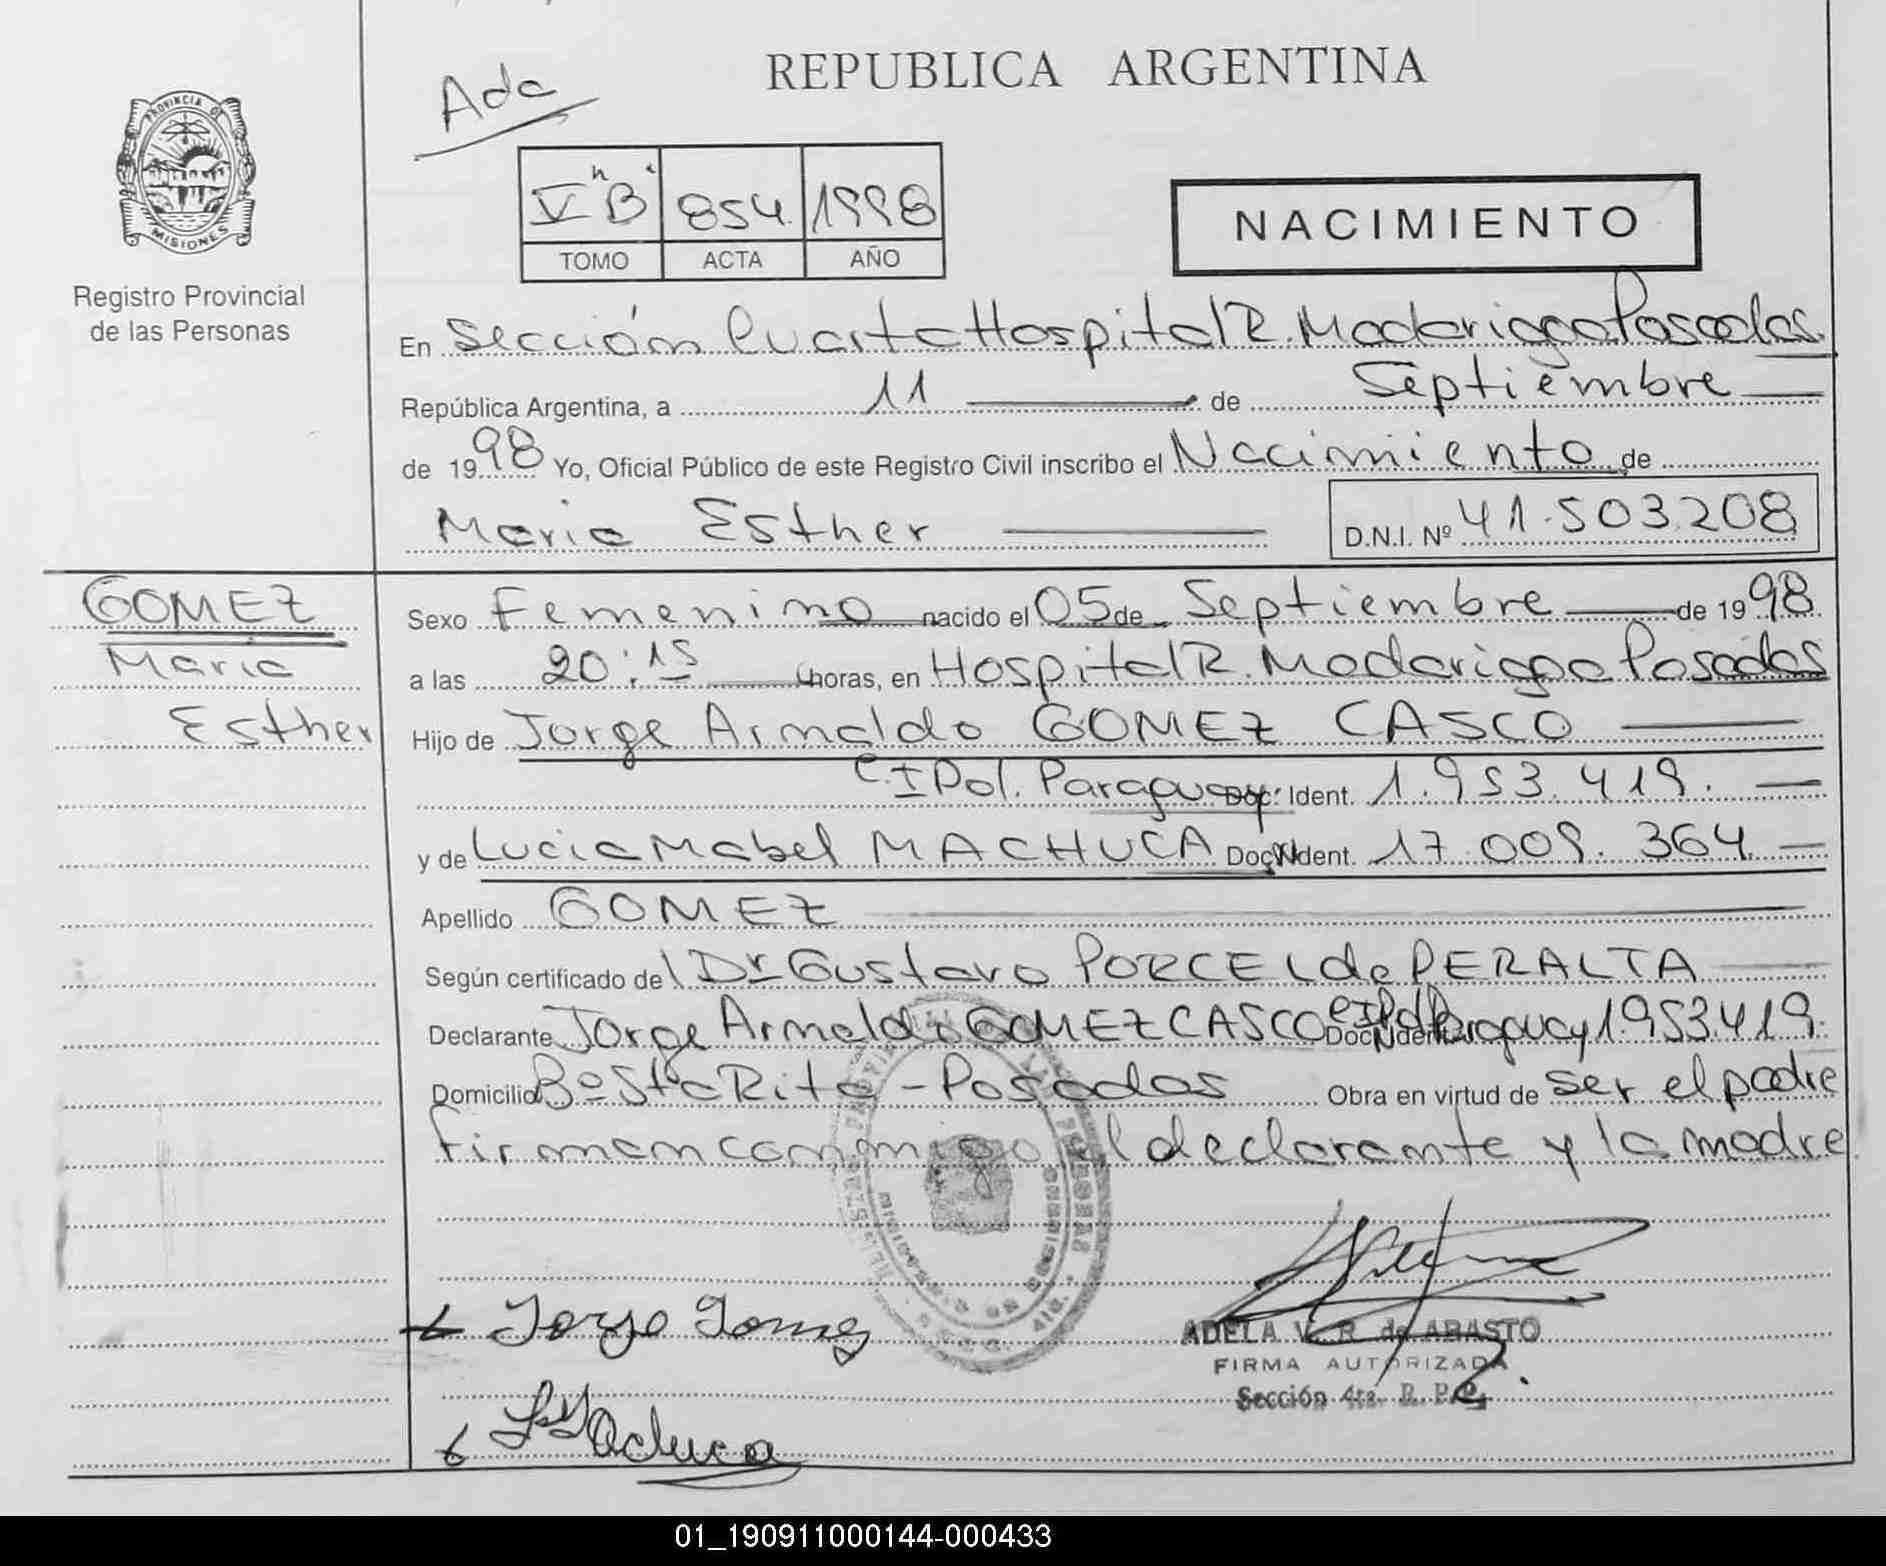 Ada
REPUBLICA ARGENTINA
PROVINCIA DE
MISIONES
Registro Provincial
de las Personas
V "B" 854 1998
TOMO ACTA AÑO
NACIMIENTO
En Sección Cuarta Hospital R. Madariaga Posadas
República Argentina, a 11 de Septiembre
de 1998 Yo, Oficial Público de este Registro Civil inscribo el Nacimiento de
Maria Esther D.N.I. Nº 41.503.208
GOMEZ
Maria
Esther
Sexo Femenino nacido el 05 de Septiembre de 1998
a las 20:15 horas, en Hospital R. Madariaga Posadas
Hijo de Jorge Arnaldo GOMEZ CASCO
C.I Pol. Paraguay Doc. Ident. 1.953.419.
y de Lucia Mabel MACHUCA Doc. Ident. 17.009.364
Apellido GOMEZ
Según certificado del Dr Gustavo PORCEL de PERALTA
Declarante Jorge Arnaldo GOMEZ CASCO Doc. Ident. CI Pol Paraguay 1.953.419.
Domicilio Bº Sta Rita - Posadas Obra en virtud de ser el padre
firman conmigo el declarante y la madre
Jorge Gomez
ADELA V. R. de ABASTO
FIRMA AUTORIZADA
Sección 4ta. R. P. P.
Machuca
01_190911000144-000433